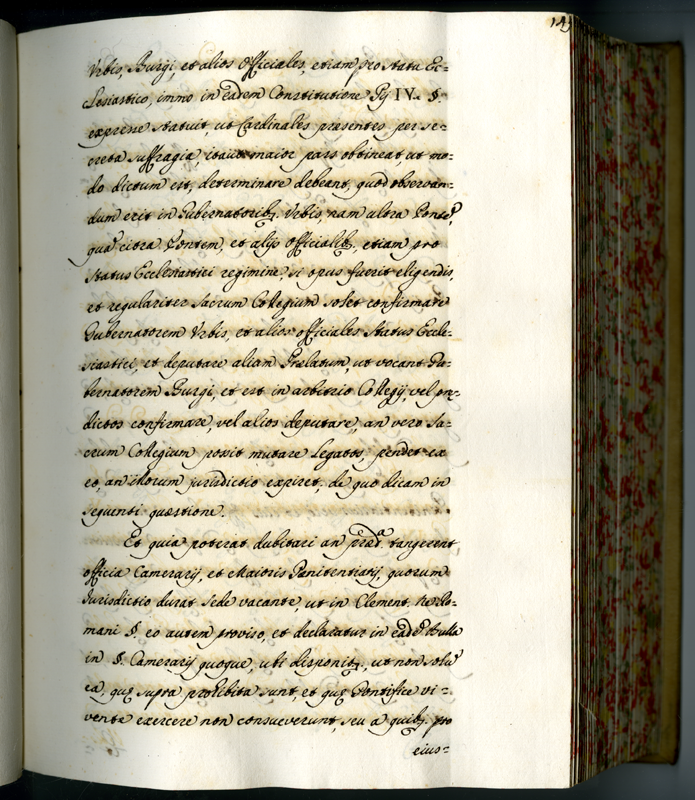 145
Urbis, Burgi, et alios Officiales, etiam pro Statu Ec=
clesiastico, immo in eadem Constitutione Pij IV. §.
expresse statuit, ut Cardinales presentes per se=
creta suffragia, itaut maior pars obtineat, ut mo=
do dictum est, determinare debeant, quod observan=
dum erit in Gubernatorib9. Urbis, nam ultra Ponte,
qua citra Pontem, et alijs Officialib9. etiam pro
Status Ecclesiastici regimine, si opus fuerit eligendis,
et regulariter Sacrum Collegium solet confirmare
Gubernatorem Urbis, et alios officiales Status Eccle=
siastici, et deputare aliam Prælatum, ut vocant Gu=
bernatorem Burgi, et est in arbitrio Collegij, vel pre=
dictos confirmare, vel alios deputare, an vero Sa=
crum Collegium possit mutare Legatos, pendet ex
eo, an illorum jurisdictio expiret, de quo dicam in
sequenti quæstione.
Et quia poterat dubitari an præd.a tangerent
officia Camerarij, et Maioris Pœnitentiarij, quorum
Jurisdictio durat Sede vacante, ut in Clement. Ne Ro=
mani §. eo autem proviso, et declaratur in eade Bulla
in §. Camerarij quoque, ubi disponit, ut non solu
ea, quę supra prohibita sunt, et quę Pontifice vi=
vente exercere non consueverunt, seu a quib9. pro
eius=